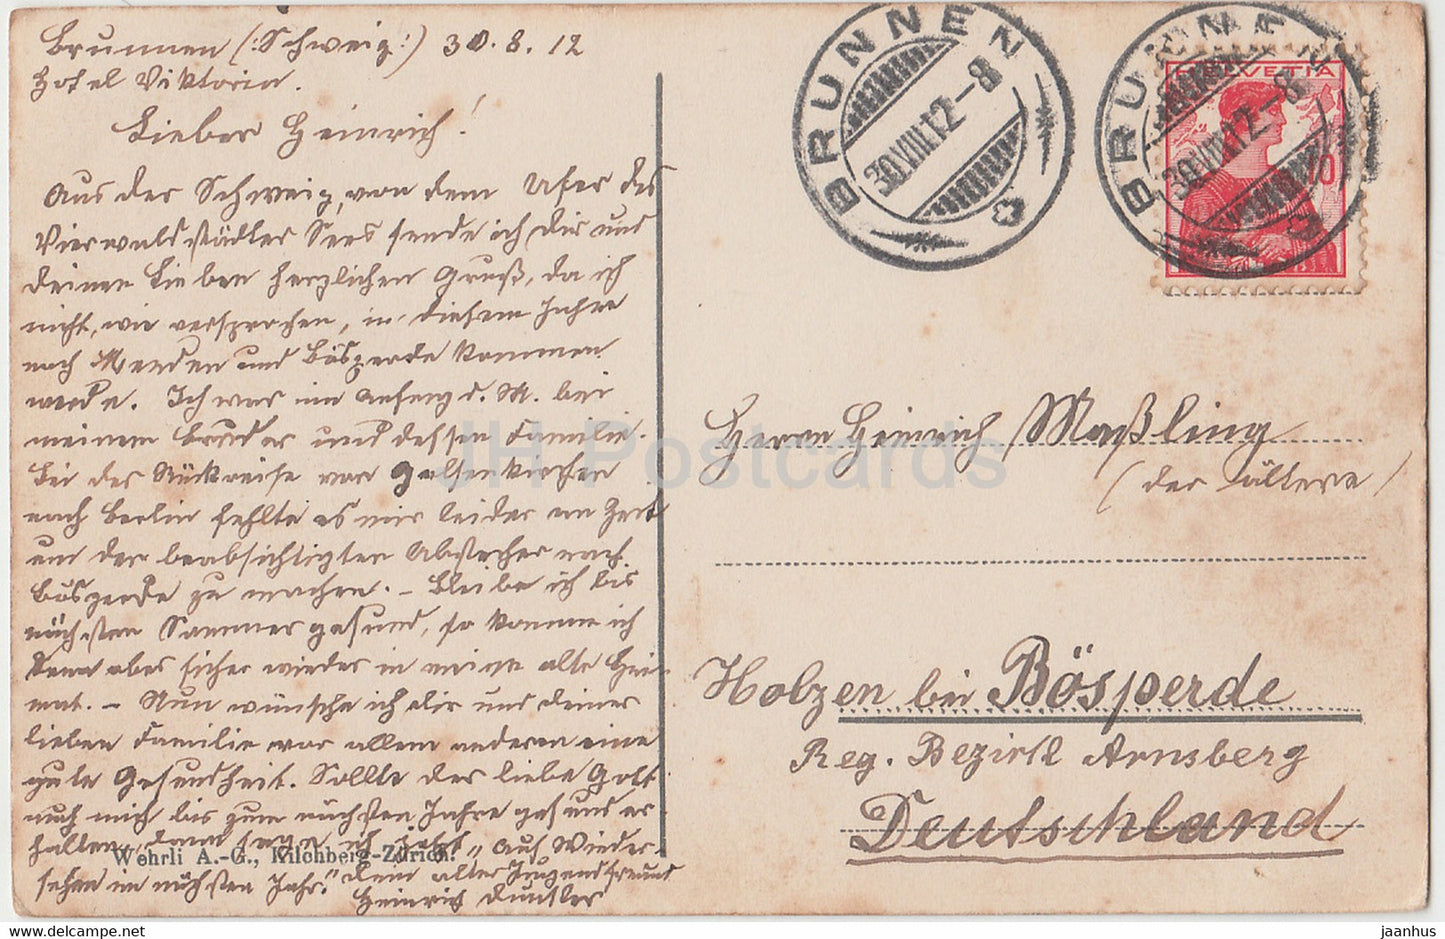 Brunnen (:Schweiz:) 30.8.12
Hotel Viktoria.
Lieber Heinrich!
Aus der Schweiz, von dem Ufer des
Vierwaldstädter Sees sende ich Dir und
Deinen Lieben herzlichen Gruß, da ich
nicht, wie versprochen, in diesem Jahre
nach Menden und Bösperde kommen
werde. Ich war im Anfang d. M. bei
meinem Bruder und dessen Familie.
Bei der Rückreise von Gelsenkirchen
nach Berlin fehlte es mir leider an Zeit
um den beabsichtigten Abstecher nach
Bösperde zu machen. – Bleibe ich bis
nächsten Sommer gesund, so komme ich
dann aber sicher wieder in meine alte Hei-
mat. – Nun wünsche ich dir und deiner
lieben Familie vor allem anderen eine
gute Gesundheit. Sollte der liebe Gott
auch mich bis zum nächsten Jahre gesund er
halten, dann sagen ich jetzt „Auf Wieder-
sehen im nächsten Jahr." Dein alter Jugendfreund
Heinrich
Wehrli A.-G., Kilchberg-Zürich.
BRUNNEN
30.VIII.12-8
BRUNNEN
30.VIII.12-8
HELVETIA
10
Herrn Heinrich Maßling
(der ältere)
Holzen bei Bösperde
Reg. Bezirk Arnsberg
Deutschland
JH Postcards
jaanhus
www.hippostcard.com/store/jaanhus